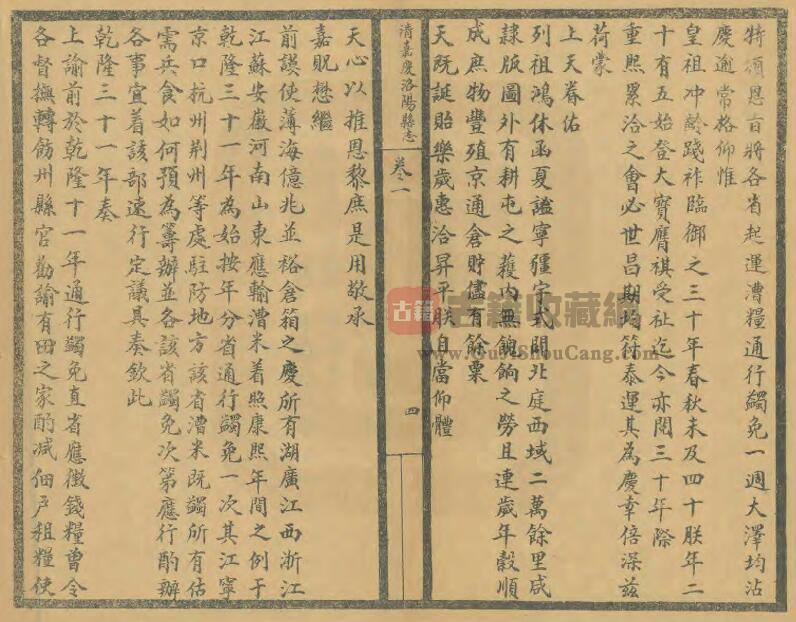 特頒恩旨將各省起運漕糧通行蠲免一週大澤均沾
慶逾常格仰惟
皇祖冲齡踐祚臨御之三十年春秋未及四十朕年二
十有五始登大寶膺祺受祉迄今亦閱三十年際
重熙累洽之會必世昌期均符泰運其為慶幸倍深茲
荷蒙
上天眷佑
列祖鴻休函夏謐寧疆宇式闢北庭西域二萬餘里咸
隸版圖外有耕屯之穫內無餽餉之勞且連歲年穀順
成庶物豐殖京通倉貯儘有餘粟
天既誕貽樂歲惠洽昇平朕自當仰體
清嘉慶洛陽縣志
卷一
四
天心以推恩黎庶是用敬承
嘉貺懋繼
前謨使薄海億兆並裕倉箱之慶所有湖廣江西浙江
江蘇安徽河南山東應輸漕米着照康熙年間之例于
乾隆三十一年為始按年分省通行蠲免一次其江寧
京口杭州荆州等處駐防地方該省漕米既蠲所有估
需兵食如何預為籌辦並各該省蠲免次第應行酌辦
各事宜着該部速行定議具奏欽此
乾隆三十一年奏
上諭前於乾隆十一年通行蠲免直省應徵錢糧曾令
各督撫轉飭州縣官勸諭有田之家酌减佃戶租糧使
古籍
古籍收藏網
www.GuJiShouCang.com